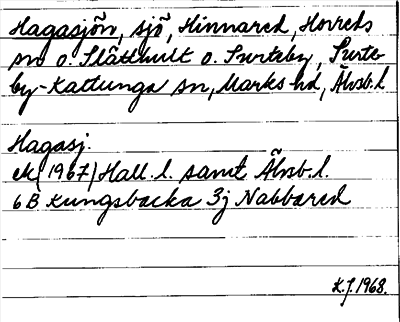 Hagasjön, sjö, Hinnared, Horreds
sn o. Slätthult o. Surteby, Surte-
by-Kattunga sn, Marks hd, Älvsb.l
Hagasj.
ek (1967) Hall.l. samt Älvsb.l.
6B Kungsbacka 3j Nabbared
K.J. 1968.